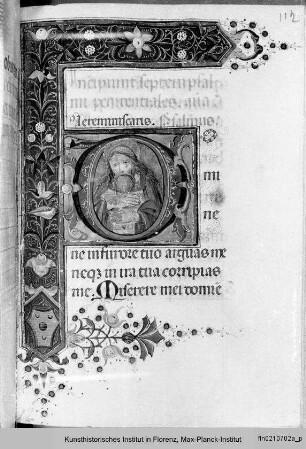 112
Incipiunt septem psal
mi penitentiales. ana
Ne reminiscaris. Psalmus.
mi
ne
ne in furore tuo arguas me
neqȝ in ira tua corripias
me. Miserere mei domine
Kunsthistorisches Institut in Florenz, Max-Planck-Institut
fln0213702a_p